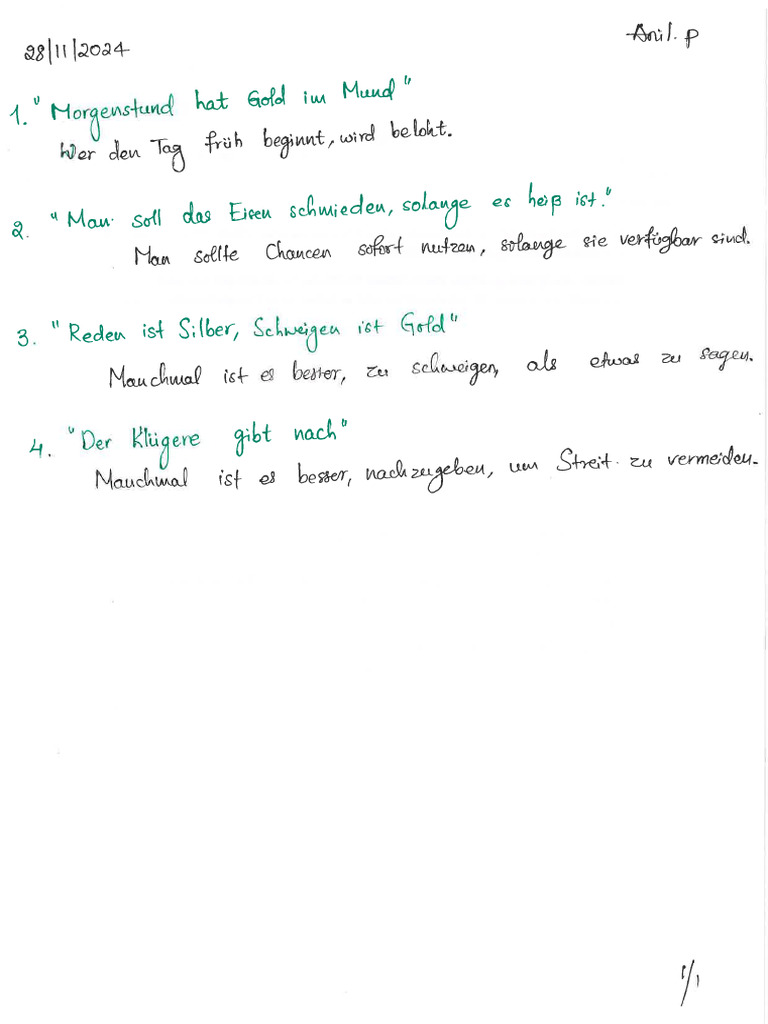 28/11/2024
Anil. P
1. "Morgenstund hat Gold im Mund"
Wer den Tag früh beginnt, wird beloht.
2. "Man soll das Eisen schmieden, solange es heiß ist."
Man sollte Chancen sofort nutzen, solange sie verfügbar sind.
3. "Reden ist Silber, Schweigen ist Gold"
Manchmal ist es besser, zu schweigen, als etwas zu sagen.
4. "Der Klügere gibt nach"
Manchmal ist es besser, nachzugeben, um Streit zu vermeiden.
1/1